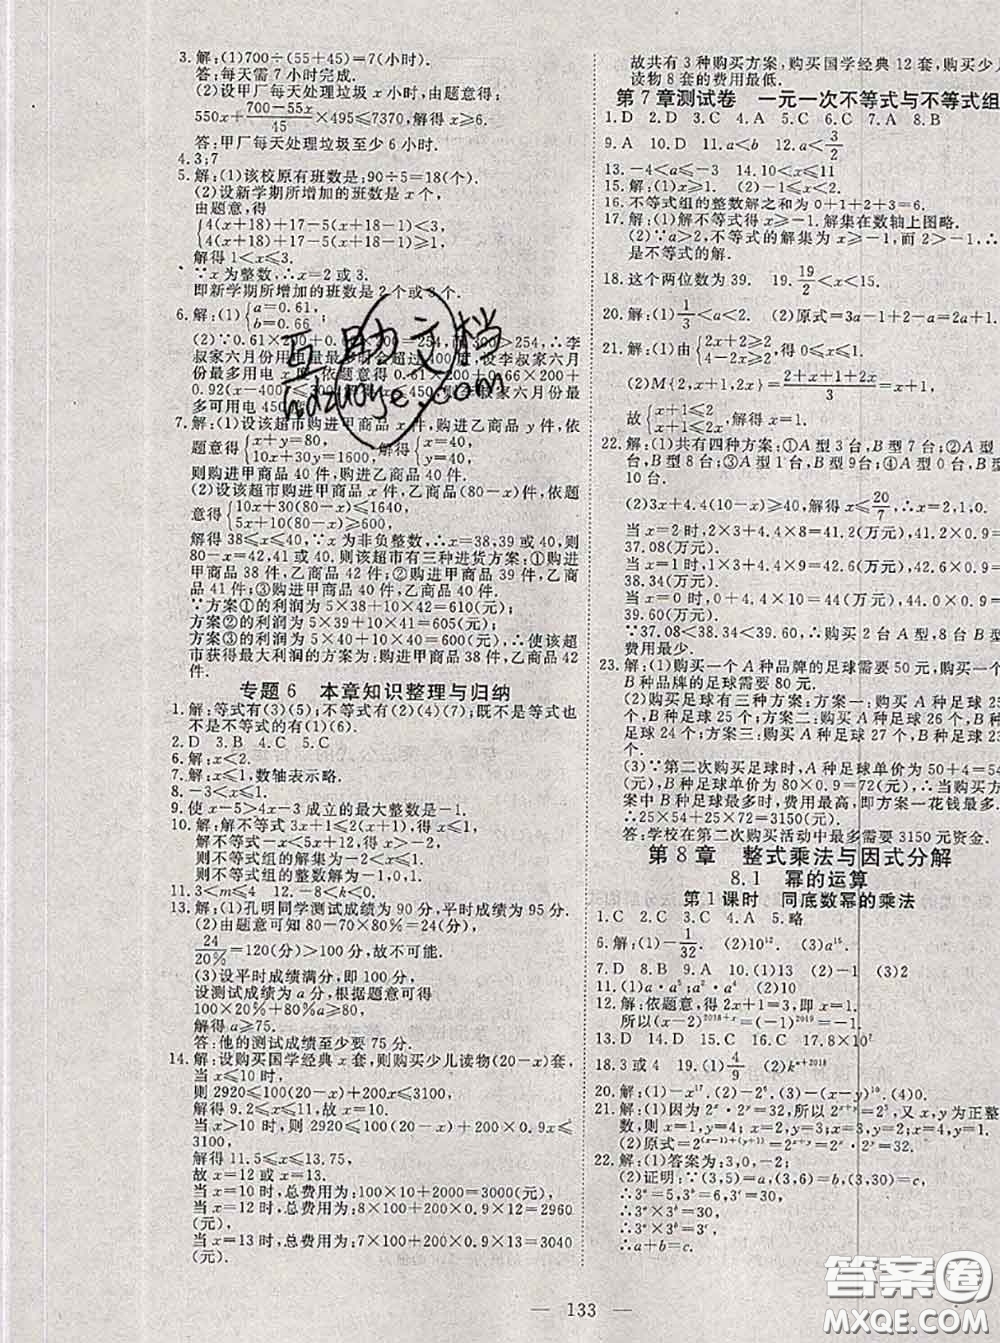 3.解:(1)700÷(55+45)=7(小时).
答:每天需 7 小时完成.
(2)设甲厂每天处理垃圾 x 小时,由题意得:
550x+(700-55x)/45×495≤7370,解得 x≥6.
答:甲厂每天处理垃圾至少 6 小时.
4.3;7
5.解:(1)该校原有班数是:90÷5=18(个).
(2)设新学期所增加的班数是 x 个.
由题意,得
{4(x+18)+17-5(x+18)<3,
4(x+18)+17-5(x+18)≥1,
解得 1<x≤3.
∵x 为整数,∴x=2 或 3.
即新学期所增加的班数是 2 个或 3 个.
6.解:(1){a=0.61,
b=0.66
叔家六月份用电量最多
份最多用电 x 度,依题意得
多可用电 450 度.
7.解:(1)设该超市购进甲商品 x 件,购进乙商品 y 件,依
题意得{x+y=80,
10x+30y=1600,解得{x=40,
y=40.
则购进甲商品 40 件,购进乙商品 40 件.
(2)设该超市购进甲商品 x 件,乙商品(80-x)件,依题
意得{10x+30(80-x)≤1640,
5x+10(80-x)≥600.
解得 38≤x≤40.∵x 为非负整数,∴x=38,39 或 40.
80-x=42,41 或 40.则该超市有三种进货方案:①购进
甲商品 38 件,乙商品 42 件;②购进甲商品 39 件,乙商
品 41 件;③购进甲商品 40 件,乙商品 40 件.
∵方案①的利润为 5×38+10×42=610(元);
方案②的利润为 5×39+10×41=605(元);
方案③的利润为 5×40+10×40=600(元),∴使该超
市获得最大利润的方案为:购进甲商品 38 件,乙商品 42
件.
专题 6 本章知识整理与归纳
1.解:等式有(3)(5);不等式有(2)(4)(7);既不是等式也
不是不等式的有(1)(6).
2.D 3.B 4.C 5.C
6.解:x<2.
7.解:x≤1,数轴表示略.
8.-3<x≤1
9.使 x-5>4x-3 成立的最大整数是-1.
10.解:解不等式 3x+1≤2(x+1),得 x≤1,
解不等式-x<5x+12,得 x>-2,
则不等式组的解集为-2<x≤1,
则不等式组的整数解为-1,0,1.
11.3<m≤4 12.-6<k<6
13.解:(1)孔明同学测试成绩为 90 分,平时成绩为 95 分.
(2)由题意可知 80-70×80%=24(分),
24/20%=120(分)>100 分,故不可能.
(3)设平时成绩满分,即 100 分,
设测试成绩为 a 分,根据题意可得
100×20%+80%a≥80,
解得 a≥75.
答:他的测试成绩至少要 75 分.
14.解:设购买国学经典 x 套,则购买少儿读物(20-x)套,
当 x≤10 时,
则 2920≤100(20-x)+200x≤3100,
解得 9.2≤x≤11,故 x=10.
当 x>10 时,则 2920≤100(20-x)+200×0.9x≤
3100,
解得 11.5≤x≤13.75,
故 x=12 或 x=13.
当 x=10 时,总费用为:10×100+2000=3000(元),
当 x=12 时,总费用为:8×100+200×0.9×12=2960
(元),
当 x=13 时,总费用为:7×100+200×0.9×13=3040
(元).
故共有 3 种购买方案,购买国学经典 12 套,购买少儿
读物 8 套的费用最低.
第 7 章测试卷 一元一次不等式与不等式组
1.D 2.D 3.C 4.A 5.C 6.C 7.A 8.B
9.A 10.D 11.a<b 12.a<3/2
13.-4<a≤-3 14.10<x≤11
15.解:(1)x≥1. (2)-1≤x<2.
16.不等式组的整数解之和为 0+1+2+3=6.
17.解:(1)解不等式得 x≥-1.解集在数轴上图略.
(2)∵a>2,不等式的解集为 x≥-1,而
是不等式的解.
18.这个两位数为 39. 19.19/2<x<15.
20.解:(1)1/3<a<2. (2)原式=3a-1+2-a=2a+1.
21.解:(1)由{2x+2≥2
4-2x≥2,得 0≤x≤1.
(2)M{2,x+1,2x}=(2+x+1+2x)/3=x+1,
故{x+1≤2
x+1≤2x,解得 x=1.
22.解:(1)共有四种方案:①A 型 3 台,B 型 7 台;②A 型
台,B 型 8 台;③A 型 1 台,B 型 9 台;④A 型 0 台,B 型
10 台.
(2)3x+4.4(10-x)≥40,解得 x≤20/7,∴x=2,1,0.
当 x=2 时,2×3+4.4×8=41.2(万元),41.2×0.9=
37.08(万元).
当 x=1 时,1×3+4.4×9=42.6(万元),42.6×0.9=
38.34(万元).
当 x=0 时,0×3+4.4×10=44(万元),44×0.9=
39.60(万元).
∵37.08<38.34<39.60,∴购买 2 台 A 型,8 台 B
费用最少.
23.解:(1)购买一个 A 种品牌的足球需要 50 元,购买一个
B 种品牌的足球需要 80 元.
(2)购买足球有三种方案:方案一:购买 A 种足球 25
个,B 种足球 25 个;方案二:购买 A 种足球 26 个,B
足球 24 个;方案三:购买 A 种足球 27 个,B 种足球
个.
(3)∵第二次购买足球时,A 种足球单价为 50+4=54
(元),B 种足球单价为 80×0.9=72(元),∴当购买
B 种足球最多时,费用最高,即方案一花钱最多.
∴25×54+25×72=3150(元).
答:学校在第二次购买活动中最多需要 3150 元资金.
第 8 章 整式乘法与因式分解
8.1 幂的运算
第 1 课时 同底数幂的乘法
1.C 2.C 3.C 4.A 5.略
6.解:(1)-1/32 (2)10¹². (3)a¹⁵.
7.D 8.B 9.A 10.(1)-a⁵ (2)-1 (3)2
11.(1)a·a⁵;a²·a⁴ (2)10
12.解:依题意,得 2x+1=3,即 x=1.
所以(x-2)²⁰¹⁸⁺ˣ=(-1)²⁰¹⁹=-1.
13.D 14.D 15.C 16.C 17.8×10⁷
18.3 或 4 19.(1)4/9 (2)kⁿ⁺²⁰¹⁸
20.解:(1)-x¹⁷. (2)-2⁶. (3)-(x-y)¹⁰. (4)0.
21.解:(1)因为 2ˣ·2ʸ=32,所以 2ˣ⁺ʸ=2⁵,又 x,y 为正整
数,则 x=1,y=4;x=2,y=3;x=3,y=2;x=4,y=1.
(2)原式=2⁽ˣ⁻¹⁾⁺⁽ʸ⁺¹⁾=2ˣ⁺ʸ=2ˣ·2ʸ=32.
22.解:(1)答案为:3,0,-2;
(2)证明:∵(3,5)=a,(3,6)=b,(3,30)=c,
∴3ᵃ=5,3ᵇ=6,3ᶜ=30,
∴3ᵃ×3ᵇ=30,
∴3ᵃ×3ᵇ=3ᶜ,
∴a+b=c.
133
互助文档
hdzuoye.com
答案圈
MXQE.COM